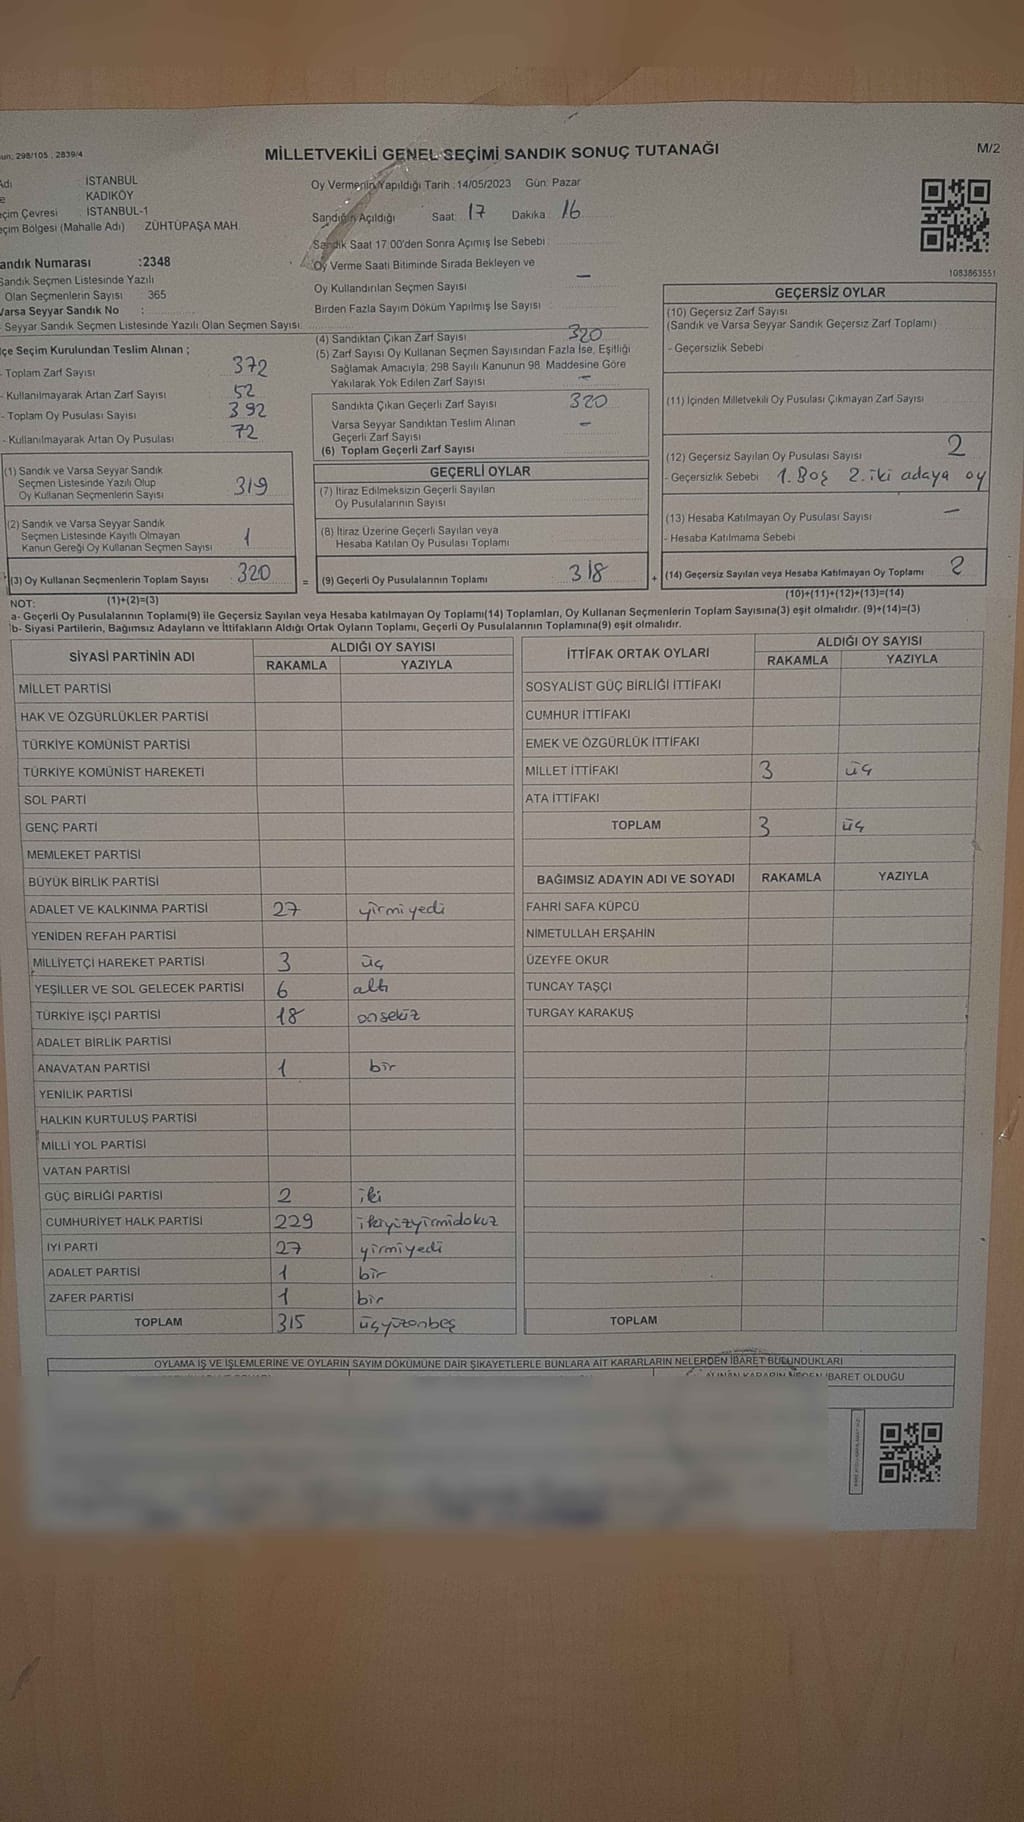 298/105 , 2839/4
MİLLETVEKİLİ GENEL SEÇİMİ SANDIK SONUÇ TUTANAĞI
M/2
İSTANBUL
KADIKÖY
Çevresi İSTANBUL-1
Bölgesi (Mahalle Adı) ZÜHTÜPAŞA MAH.
Oy Vermenin Yapıldığı Tarih :14/05/2023 Gün: Pazar
Sandığın Açıldığı Saat: 17 Dakika: 16
Sandık Saat 17.00'den Sonra Açımış İse Sebebi :
Oy Verme Saati Bitiminde Sırada Bekleyen ve
Oy Kullandırılan Seçmen Sayısı –
Birden Fazla Sayım Döküm Yapılmış İse Sayısı :
Numarası :2348
Sandık Seçmen Listesinde Yazılı
Olan Seçmenlerin Sayısı : 365
Varsa Seyyar Sandık No :
- Seyyar Sandık Seçmen Listesinde Yazılı Olan Seçmen Sayısı:
Seçim Kurulundan Teslim Alınan ;
- Toplam Zarf Sayısı 372
- Kullanılmayarak Artan Zarf Sayısı 52
- Toplam Oy Pusulası Sayısı 392
- Kullanılmayarak Artan Oy Pusulası 72
(1) Sandık ve Varsa Seyyar Sandık
Seçmen Listesinde Yazılı Olup
Oy Kullanan Seçmenlerin Sayısı 319
(2) Sandık ve Varsa Seyyar Sandık
Seçmen Listesinde Kayıtlı Olmayan
Kanun Gereği Oy Kullanan Seçmen Sayısı 1
(3) Oy Kullanan Seçmenlerin Toplam Sayısı 320 =
(1)+(2)=(3)
(4) Sandıktan Çıkan Zarf Sayısı 320
(5) Zarf Sayısı Oy Kullanan Seçmen Sayısından Fazla İse, Eşitliği
Sağlamak Amacıyla, 298 Sayılı Kanunun 98. Maddesine Göre
Yakılarak Yok Edilen Zarf Sayısı –
Sandıkta Çıkan Geçerli Zarf Sayısı 320
Varsa Seyyar Sandıktan Teslim Alınan
Geçerli Zarf Sayısı –
(6) Toplam Geçerli Zarf Sayısı
GEÇERLİ OYLAR
(7) İtiraz Edilmeksizin Geçerli Sayılan
Oy Pusulalarının Sayısı
(8) İtiraz Üzerine Geçerli Sayılan veya
Hesaba Katılan Oy Pusulası Toplamı
(9) Geçerli Oy Pusulalarının Toplamı 318 +
1083863551
GEÇERSİZ OYLAR
(10) Geçersiz Zarf Sayısı
(Sandık ve Varsa Seyyar Sandık Geçersiz Zarf Toplamı)
- Geçersizlik Sebebi
(11) İçinden Milletvekili Oy Pusulası Çıkmayan Zarf Sayısı
(12) Geçersiz Sayılan Oy Pusulası Sayısı 2
- Geçersizlik Sebebi 1. Boş 2. iki adaya oy
(13) Hesaba Katılmayan Oy Pusulası Sayısı –
- Hesaba Katılmama Sebebi
(14) Geçersiz Sayılan veya Hesaba Katılmayan Oy Toplamı 2
(10)+(11)+(12)+(13)=(14)
NOT:
a- Geçerli Oy Pusulalarının Toplamı(9) ile Geçersiz Sayılan veya Hesaba katılmayan Oy Toplamı(14) Toplamları, Oy Kullanan Seçmenlerin Toplam Sayısına(3) eşit olmalıdır. (9)+(14)=(3)
b- Siyasi Partilerin, Bağımsız Adayların ve İttifakların Aldığı Ortak Oyların Toplamı, Geçerli Oy Pusulalarının Toplamına(9) eşit olmalıdır.
SİYASİ PARTİNİN ADI ALDIĞI OY SAYISI
RAKAMLA YAZIYLA
MİLLET PARTİSİ
HAK VE ÖZGÜRLÜKLER PARTİSİ
TÜRKİYE KOMÜNİST PARTİSİ
TÜRKİYE KOMÜNİST HAREKETİ
SOL PARTİ
GENÇ PARTİ
MEMLEKET PARTİSİ
BÜYÜK BİRLİK PARTİSİ
ADALET VE KALKINMA PARTİSİ 27 yirmiyedi
YENİDEN REFAH PARTİSİ
MİLLİYETÇİ HAREKET PARTİSİ 3 üç
YEŞİLLER VE SOL GELECEK PARTİSİ 6 altı
TÜRKİYE İŞÇİ PARTİSİ 18 onsekiz
ADALET BİRLİK PARTİSİ
ANAVATAN PARTİSİ 1 bir
YENİLİK PARTİSİ
HALKIN KURTULUŞ PARTİSİ
MİLLİ YOL PARTİSİ
VATAN PARTİSİ
GÜÇ BİRLİĞİ PARTİSİ 2 iki
CUMHURİYET HALK PARTİSİ 229 ikiyüzyirmidokuz
İYİ PARTİ 27 yirmiyedi
ADALET PARTİSİ 1 bir
ZAFER PARTİSİ 1 bir
TOPLAM 315 üçyüzonbeş
İTTİFAK ORTAK OYLARI ALDIĞI OY SAYISI
RAKAMLA YAZIYLA
SOSYALİST GÜÇ BİRLİĞİ İTTİFAKI
CUMHUR İTTİFAKI
EMEK VE ÖZGÜRLÜK İTTİFAKI
MİLLET İTTİFAKI 3 üç
ATA İTTİFAKI
TOPLAM 3 üç
BAĞIMSIZ ADAYIN ADI VE SOYADI RAKAMLA YAZIYLA
FAHRİ SAFA KÜPCÜ
NİMETULLAH ERŞAHİN
ÜZEYFE OKUR
TUNCAY TAŞÇI
TURGAY KARAKUŞ
TOPLAM
OYLAMA İŞ VE İŞLEMLERİNE VE OYLARIN SAYIM DÖKÜMÜNE DAİR ŞİKAYETLERLE BUNLARA AİT KARARLARIN NELERDEN İBARET BULUNDUKLARI
ALINAN KARARIN NEDEN İBARET OLDUĞU